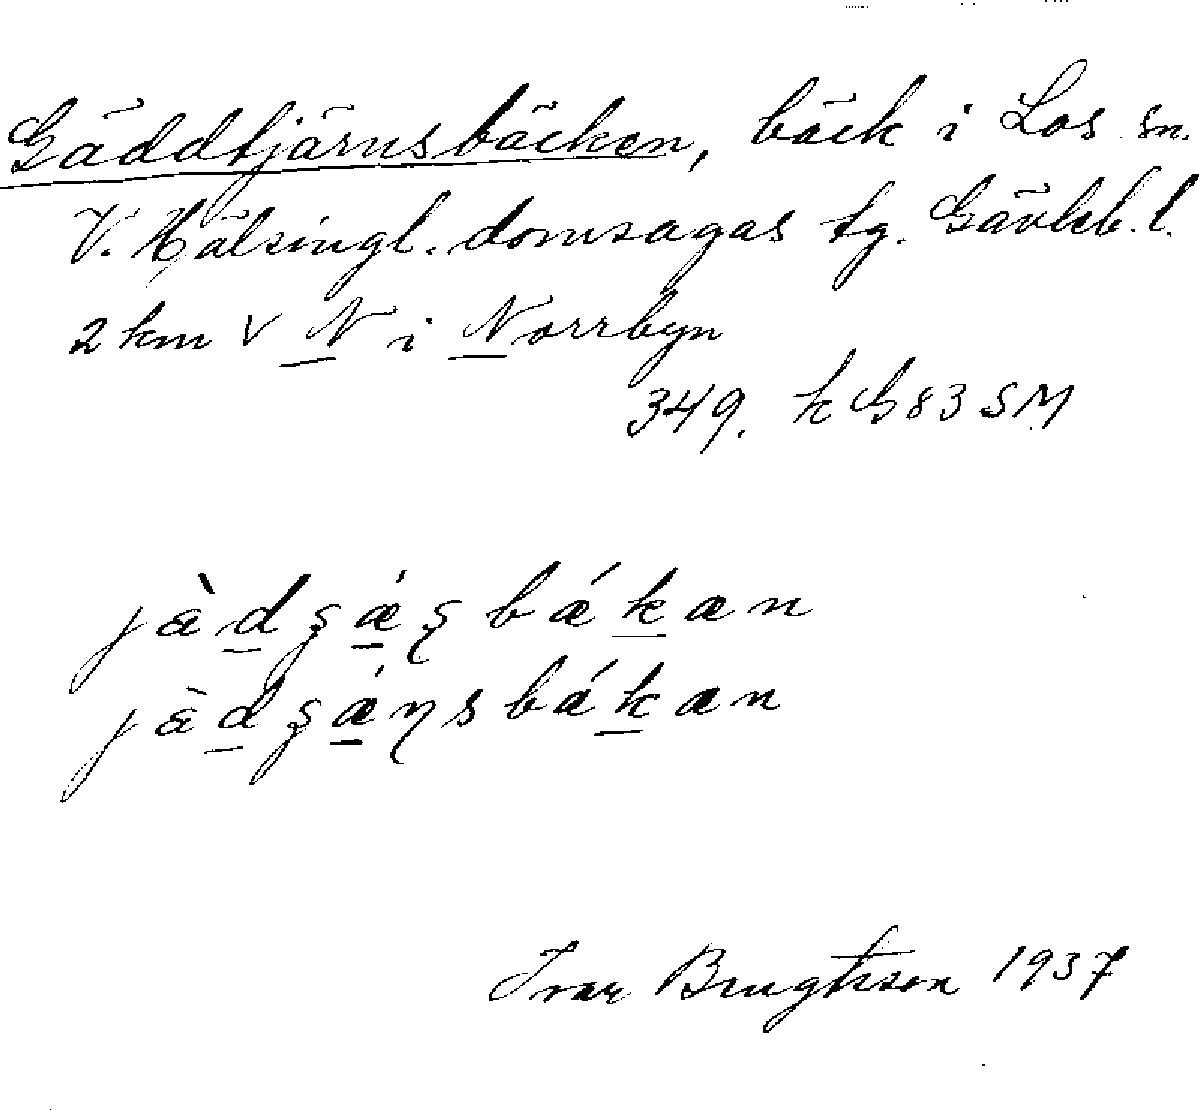 Gäddtjärnsbäcken, bäck i Los sn.
V. Hälsingl. domsagas tg. Gävleb. l.
2 km V N i Norrbyn
349. k G 83 SM
jàdʂǽʂbǽkæn
jàdʂǽɳsbǽkæn
Ivar Bengtsson 1937